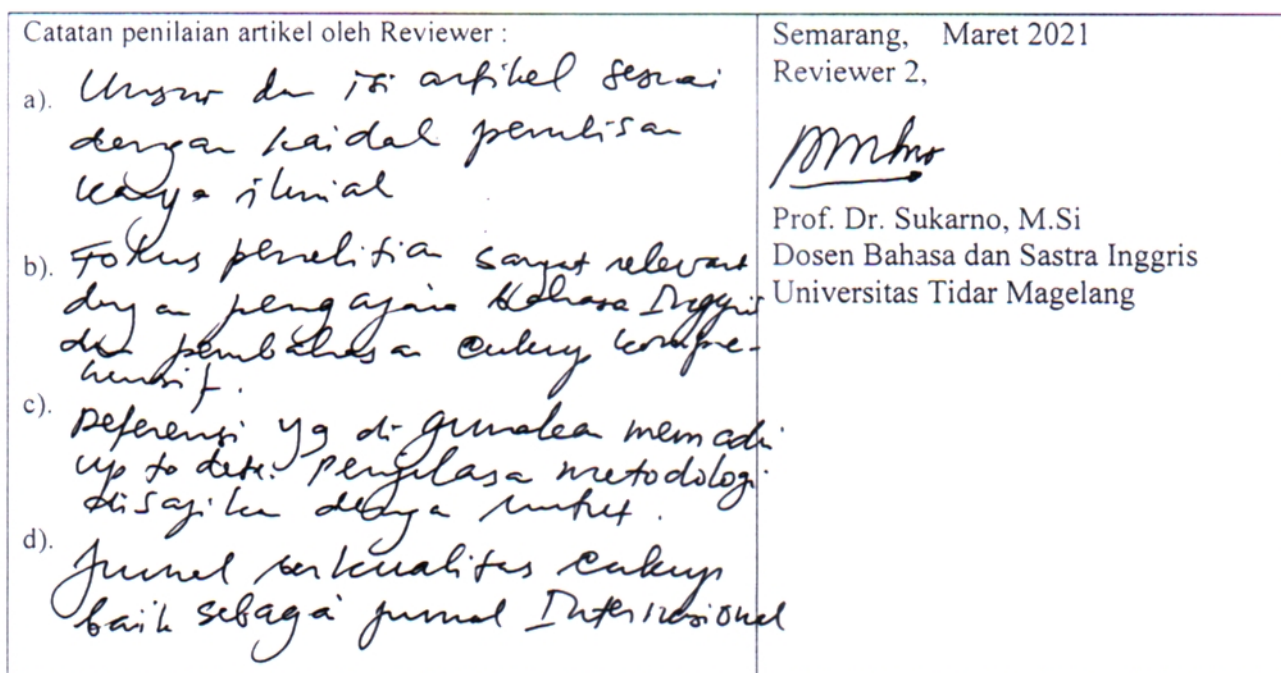 Catatan penilaian artikel oleh Reviewer :
a). Unsur dan isi artikel sesuai
dengan kaidah penulisan
karya ilmiah
b). Fokus penelitian sangat relevant
dengan pengajaran Bahasa Inggris
dan pembahasan cukup kompre-
hensif.
c). Referensi yg digunakan memadai
up to date. Penjelasan metodologi
disajikan dengan runtut.
d). Jurnal berkualitas cukup
baik sebagai jurnal Internasional
Semarang, Maret 2021
Reviewer 2,
Prof. Dr. Sukarno, M.Si
Dosen Bahasa dan Sastra Inggris
Universitas Tidar Magelang